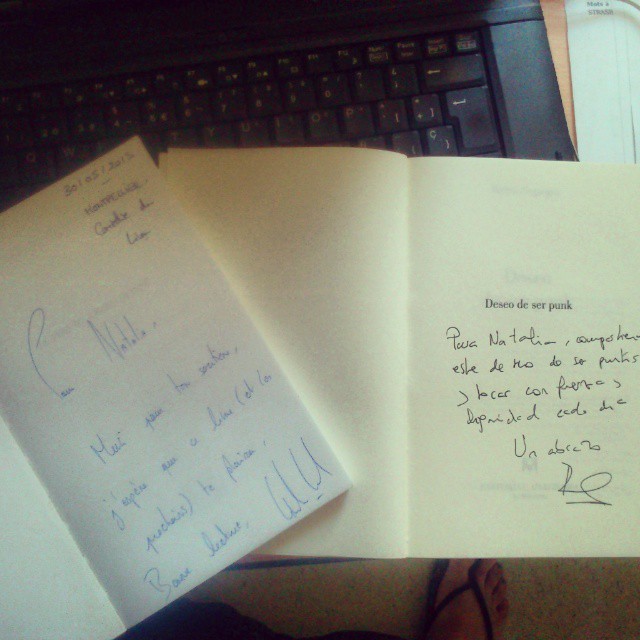 Montpellier
Comédie du
Livre
Pour Natalia,
Merci pour ton soutien,
j'espère que ce livre (et les
prochains) te plaira,
Bonne lecture,
Deseo de ser punk
Para Natalia,
este deseo de ser punks
y tocar con fuerza y
dignidad cada día
Un abrazo